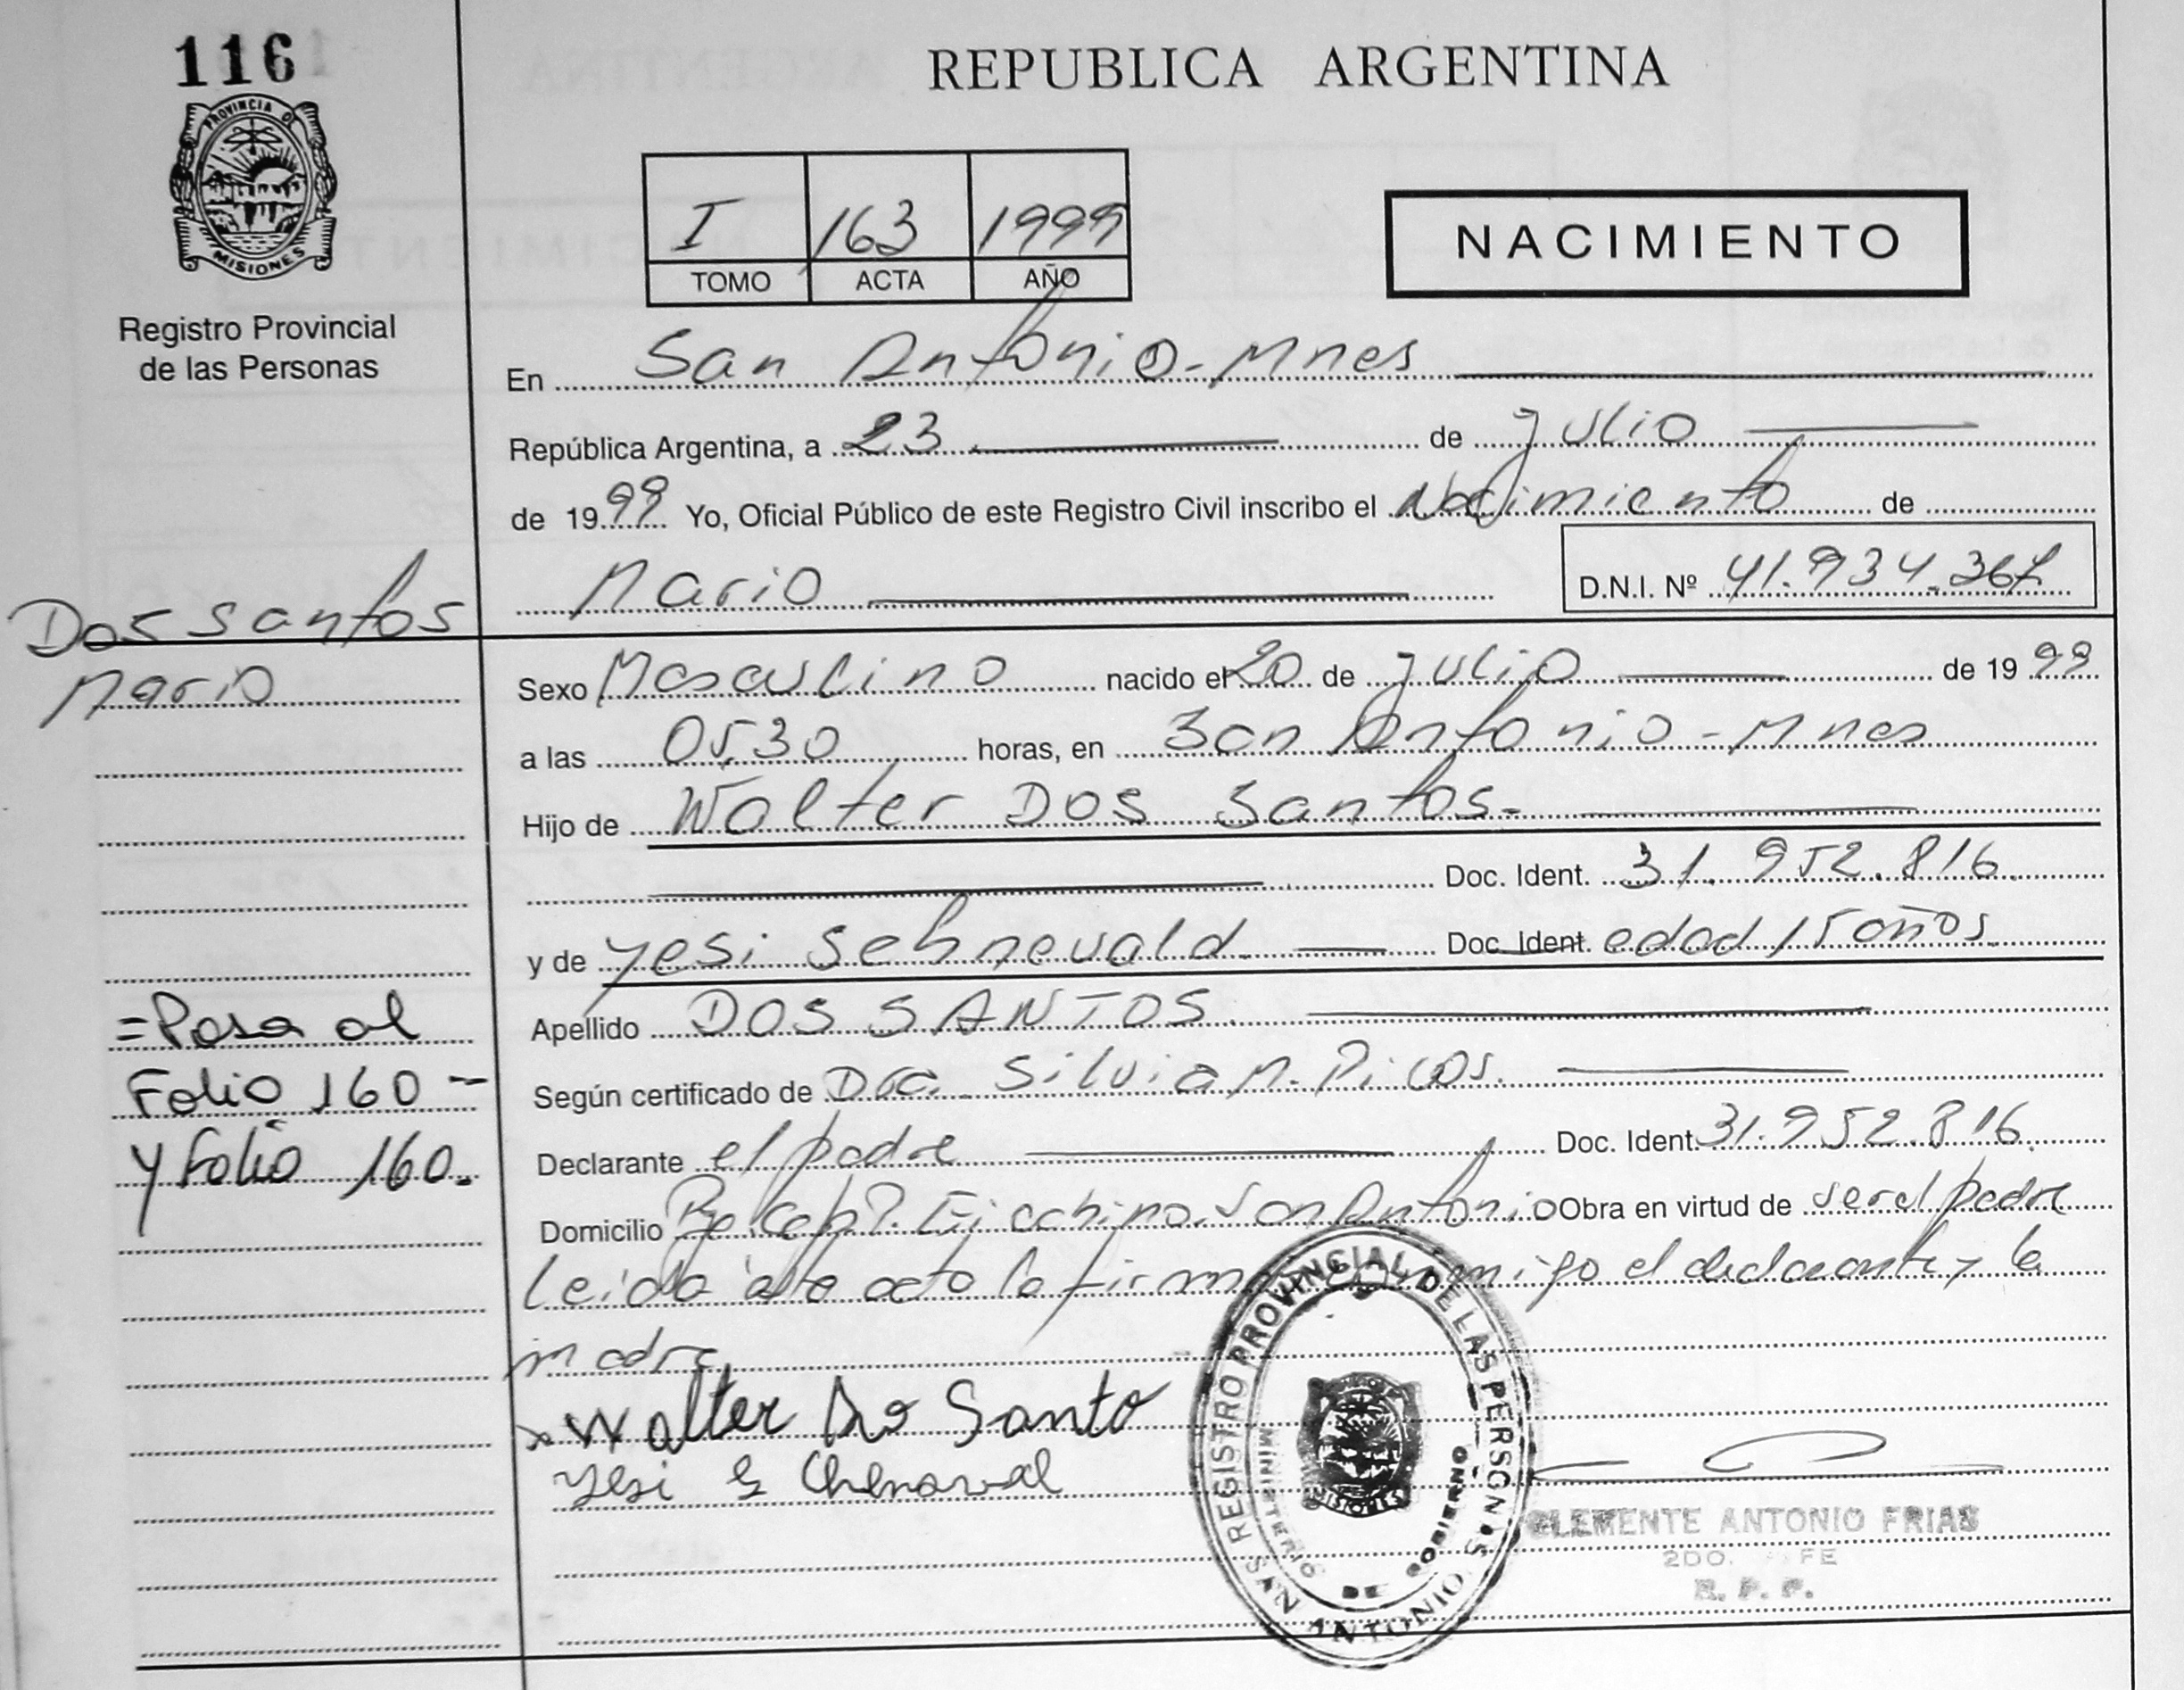 116
PROVINCIA D
MISIONES
Registro Provincial
de las Personas
REPUBLICA ARGENTINA
I 163 1999
TOMO ACTA AÑO
NACIMIENTO
En San Antonio - Mnes
República Argentina, a 23 de Julio
de 1999 Yo, Oficial Público de este Registro Civil inscribo el Nacimiento de
Mario D.N.I. Nº 41.934.367
Dos santos
Mario
Sexo Masculino nacido el 20 de Julio de 1999
a las 05,30 horas, en San Antonio - Mnes
Hijo de Walter Dos Santos.
Doc. Ident. 31.952.816.
y de Yesi Sehnevald. Doc. Ident. edad 15 años.
Apellido DOS SANTOS.
=Pasa al
Folio 160 -
y folio 160.
Según certificado de Dra. Silvia M. Picos.
Declarante el padre Doc. Ident. 31.952.816.
Domicilio San Antonio Obra en virtud de ser el padre
Leida acto la firma conmigo el declarante y la
madre
x Walter Do Santo
yesi Chenaval
REGISTRO PROVINCIAL DE LAS PERSONAS
SAN ANTONIO
MINISTERIO DE GOBIERNO
MISIONES
CLEMENTE ANTONIO FRIAS
2DO. FE
R. P. P.